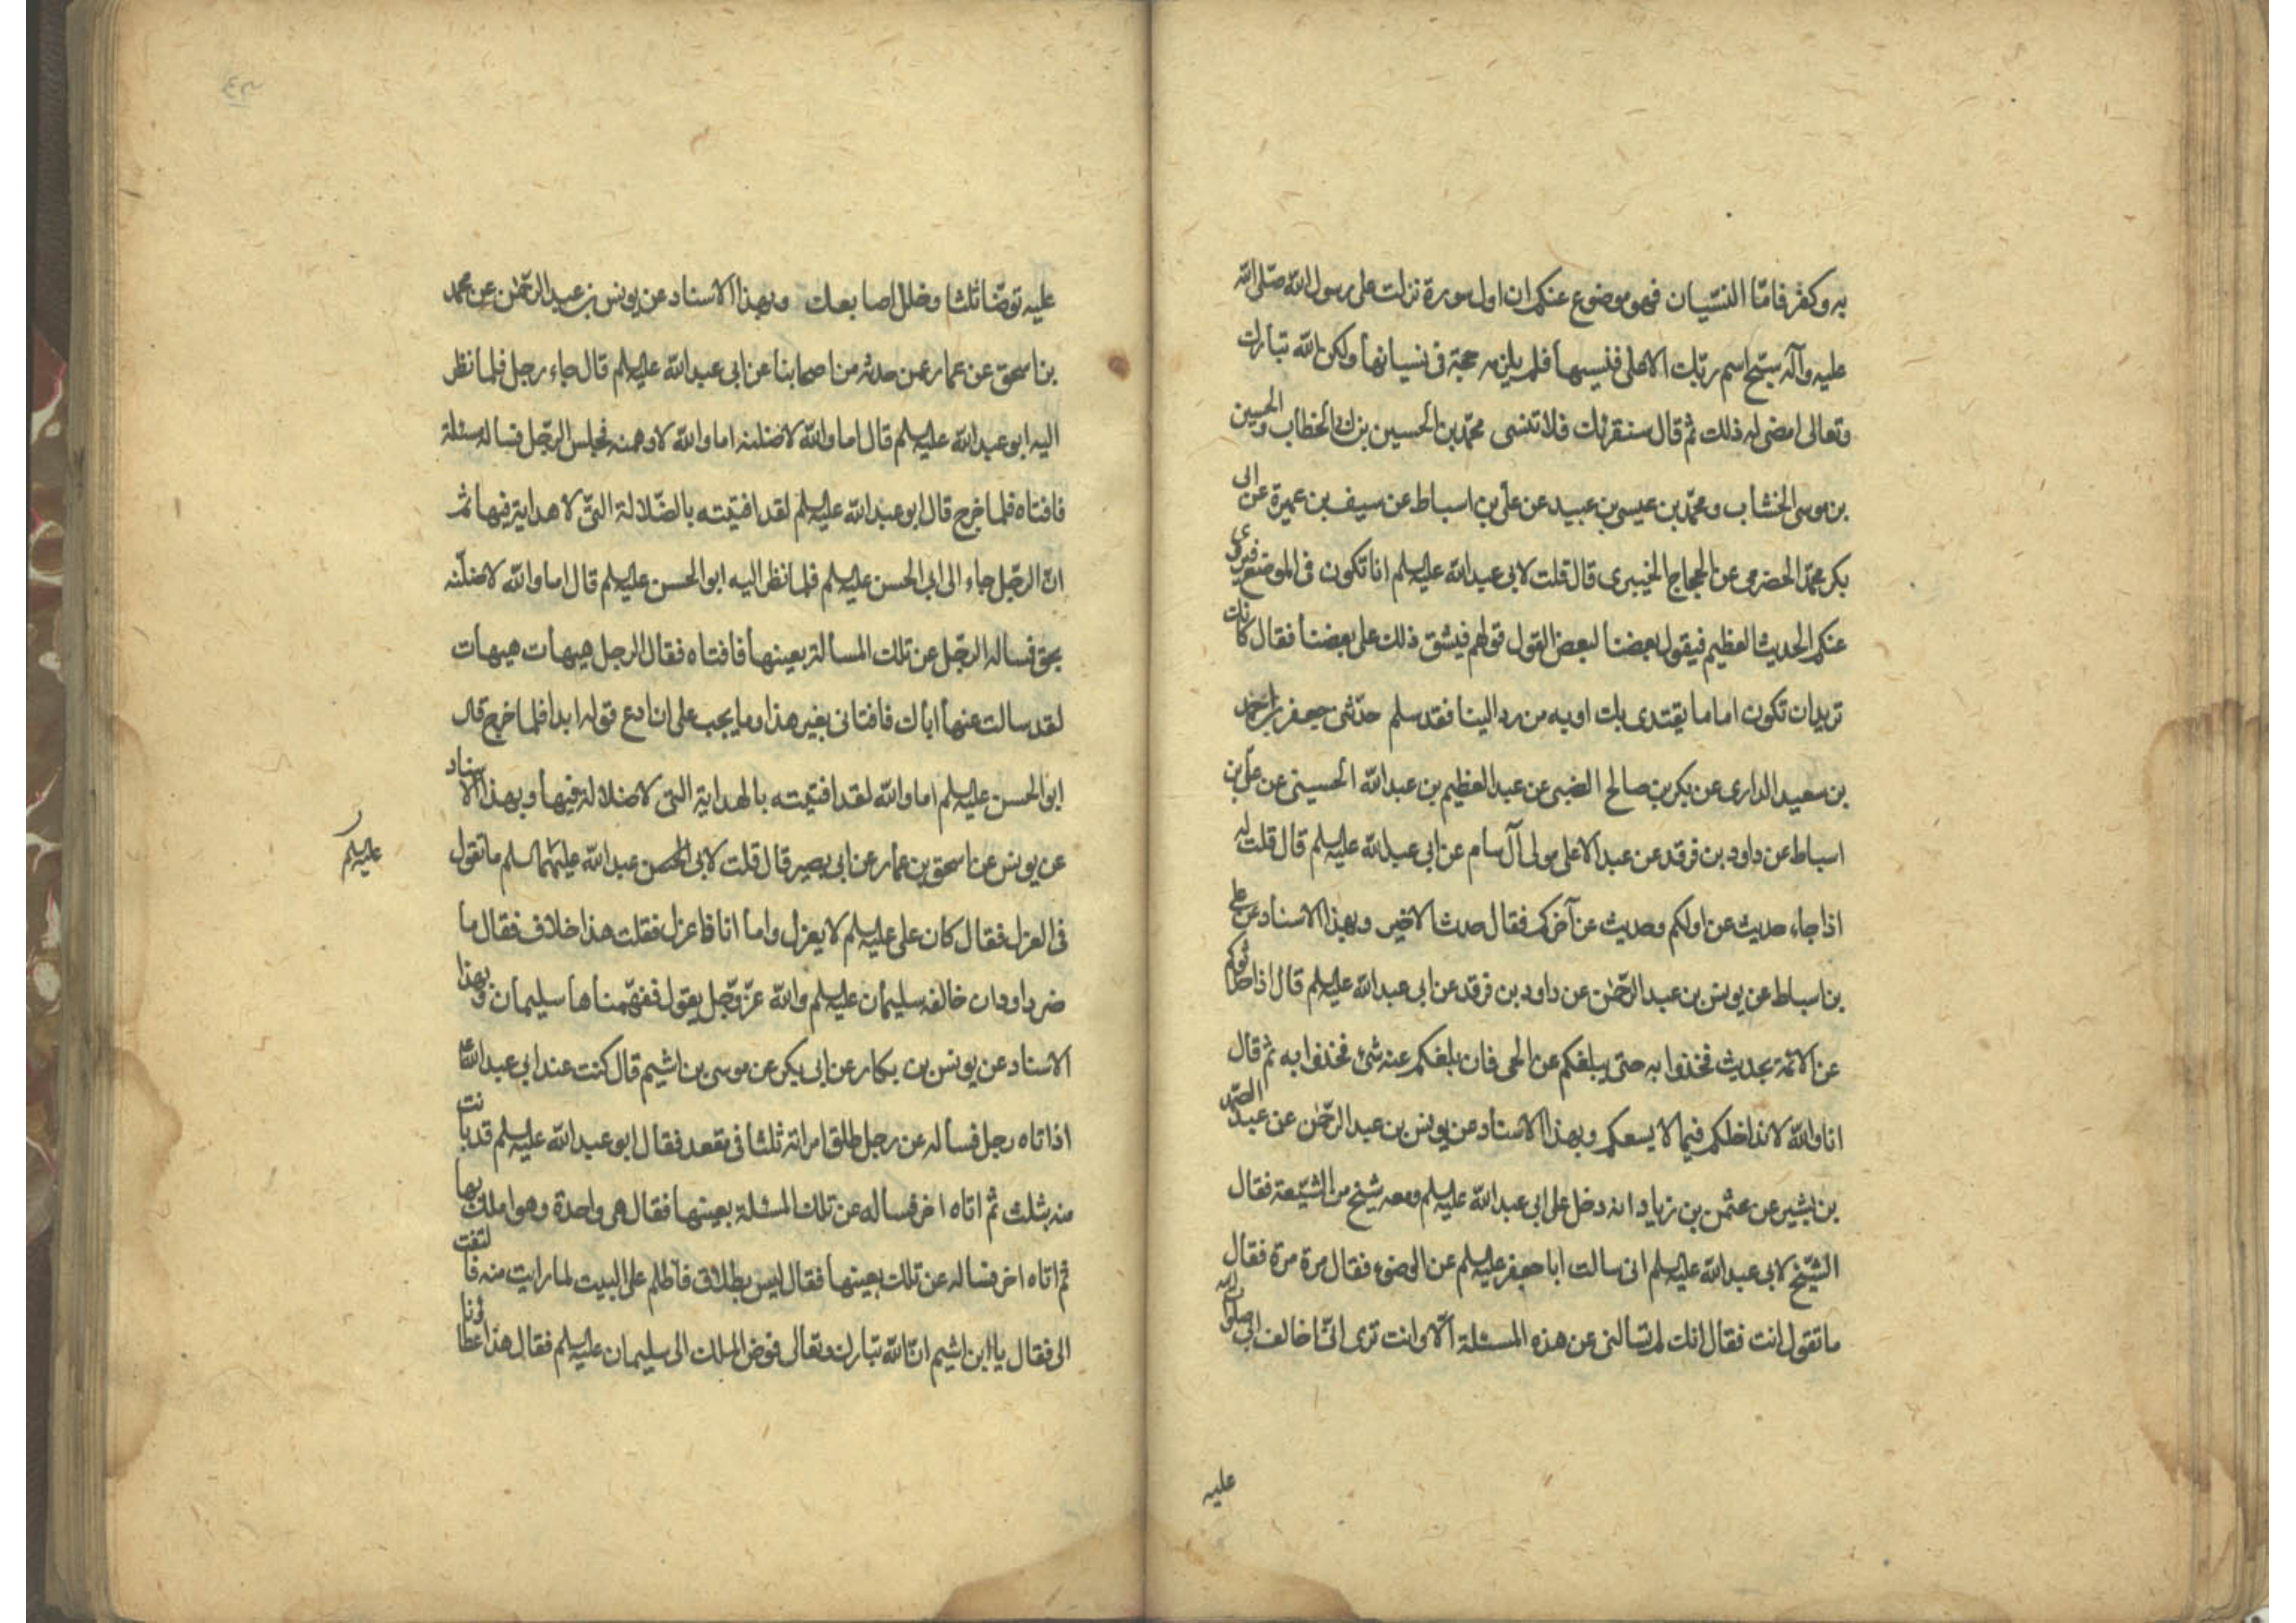 به وكفر فامّا النسيان فهو موضوع عنكم ان اول سورة نزلت على رسول الله صلى الله
عليه وآله سبّح اسم ربّك الاعلى فنسيها فلم يلزمه حجة فى نسيانها ولكن الله تبارك
وتعالى امضى له ذلك ثم قال سنقرئك فلا تنسى محمّد بن الحسين بن ابى الخطاب والحسين
بن موسى الخشاب ومحمّد بن عيسى بن عبيد عن على بن اسباط عن سيف بن عميرة عن ابى
بكر محمّد الحضرمى عن الحجاج الخيبرى قال قلت لابى عبد الله عليه السلم انا نكون فى الموضع فيروى
عنكم الحديث العظيم فيقول بعضنا لبعض القول قولهم فيشق ذلك على بعضنا فقال كانك
تريد ان تكون اماما يقتدى بك او به من رد الينا فقد سلم حدّثنى جعفر بن احمد
بن سعيد الدارى عن بكر بن صالح الضبى عن عبد العظيم بن عبد الله الحسينى عن على بن
اسباط عن داود بن فرقد عن عبد الاعلى مولى آل سام عن ابى عبد الله عليه السلم قال قلت له
اذا جاء حديث عن اولكم وحديث عن آخركم فقال حدث الاخير وبهذا الاسناد عن على
بن اسباط عن يونس بن عبد الرحمن عن داود بن فرقد عن ابى عبد الله عليه السلم قال اذا حدثوكم
عن الائمة بحديث فخذوا به حتى يبلغكم عن الحى فان بلغكم عنه شىء فخذوا به ثم قال
انا والله لا ندخلكم فيما لا يسعكم وبهذا الاسناد عن يونس بن عبد الرحمن عن عبد الصمد
بن بشير عن عثمن بن زياد انه دخل على ابى عبد الله عليه السلم ومعه شيخ من الشيعة فقال
الشيخ لابى عبد الله عليه السلم انى سالت ابا جعفر عليه السلم عن الوضوء فقال مرة مرة فقال
ما تقول انت فقال انك لم تسالنى عن هذه المسئلة الّا وانت ترى انّى اخالف ابى صلوات الله
عليه
عليه توضّا ثلثا وخلل اصابعك وبهذا الاسناد عن يونس بن عبد الرحمن عن محمد
بن اسحق عن عمار عمن حدثه من اصحابنا عن ابى عبد الله عليه السلم قال جاء رجل فلما نظر
اليه ابو عبد الله عليه السلم قال اما والله لاضلنه اما والله لاوهمنه فجلس الرجل فساله مسئلة
فافتاه فلما خرج قال ابو عبد الله عليه السلم لقد افتيته بالضلالة التى لا هداية فيها ثم
انّ الرجل جاء الى ابى الحسن عليه السلم فلما نظر اليه ابو الحسن عليه السلم قال اما والله لاضلّنه
بحق فساله الرجل عن تلك المسالة بعينها فافتاه فقال الرجل هيهات هيهات
لقد سالت عنها اباك فافتانى بغير هذا وما يجب على ان ادع قوله ابدا فلما خرج قال
ابو الحسن عليه السلم اما والله لقد افتيته بالهداية التى لا ضلالة فيها وبهذا الاسناد
عن يونس عن اسحق بن عمار عن ابى بصير قال قلت لابى الحسن عبد الله عليهما السلم ما تقول
عليه السلم
فى العزل فقال كان على عليه السلم لا يعزل واما انا فاعزل فقلت هذا خلاف فقال ما
ضر داود ان خالفه سليمان عليه السلم والله عزّ وجل يقول ففهّمناها سليمان وبهذا
الاسناد عن يونس بن بكار عن ابى بكر عن موسى بن اشيم قال كنت عند ابى عبد الله ع
اذ اتاه رجل فساله عن رجل طلق امراته ثلثا فى مقعد فقال ابو عبد الله عليه السلم قد بانت
منه بثلث ثم اتاه اخر فساله عن تلك المسئلة بعينها فقال هى واحدة وهو املك بها
ثم اتاه اخر فساله عن تلك بعينها فقال ليس بطلاق فاظلم على البيت لما رايت منه فالتفت
الى فقال يا ابن اشيم انّ الله تبارك وتعالى فوض الملك الى سليمان عليه السلم فقال هذا عطاؤنا